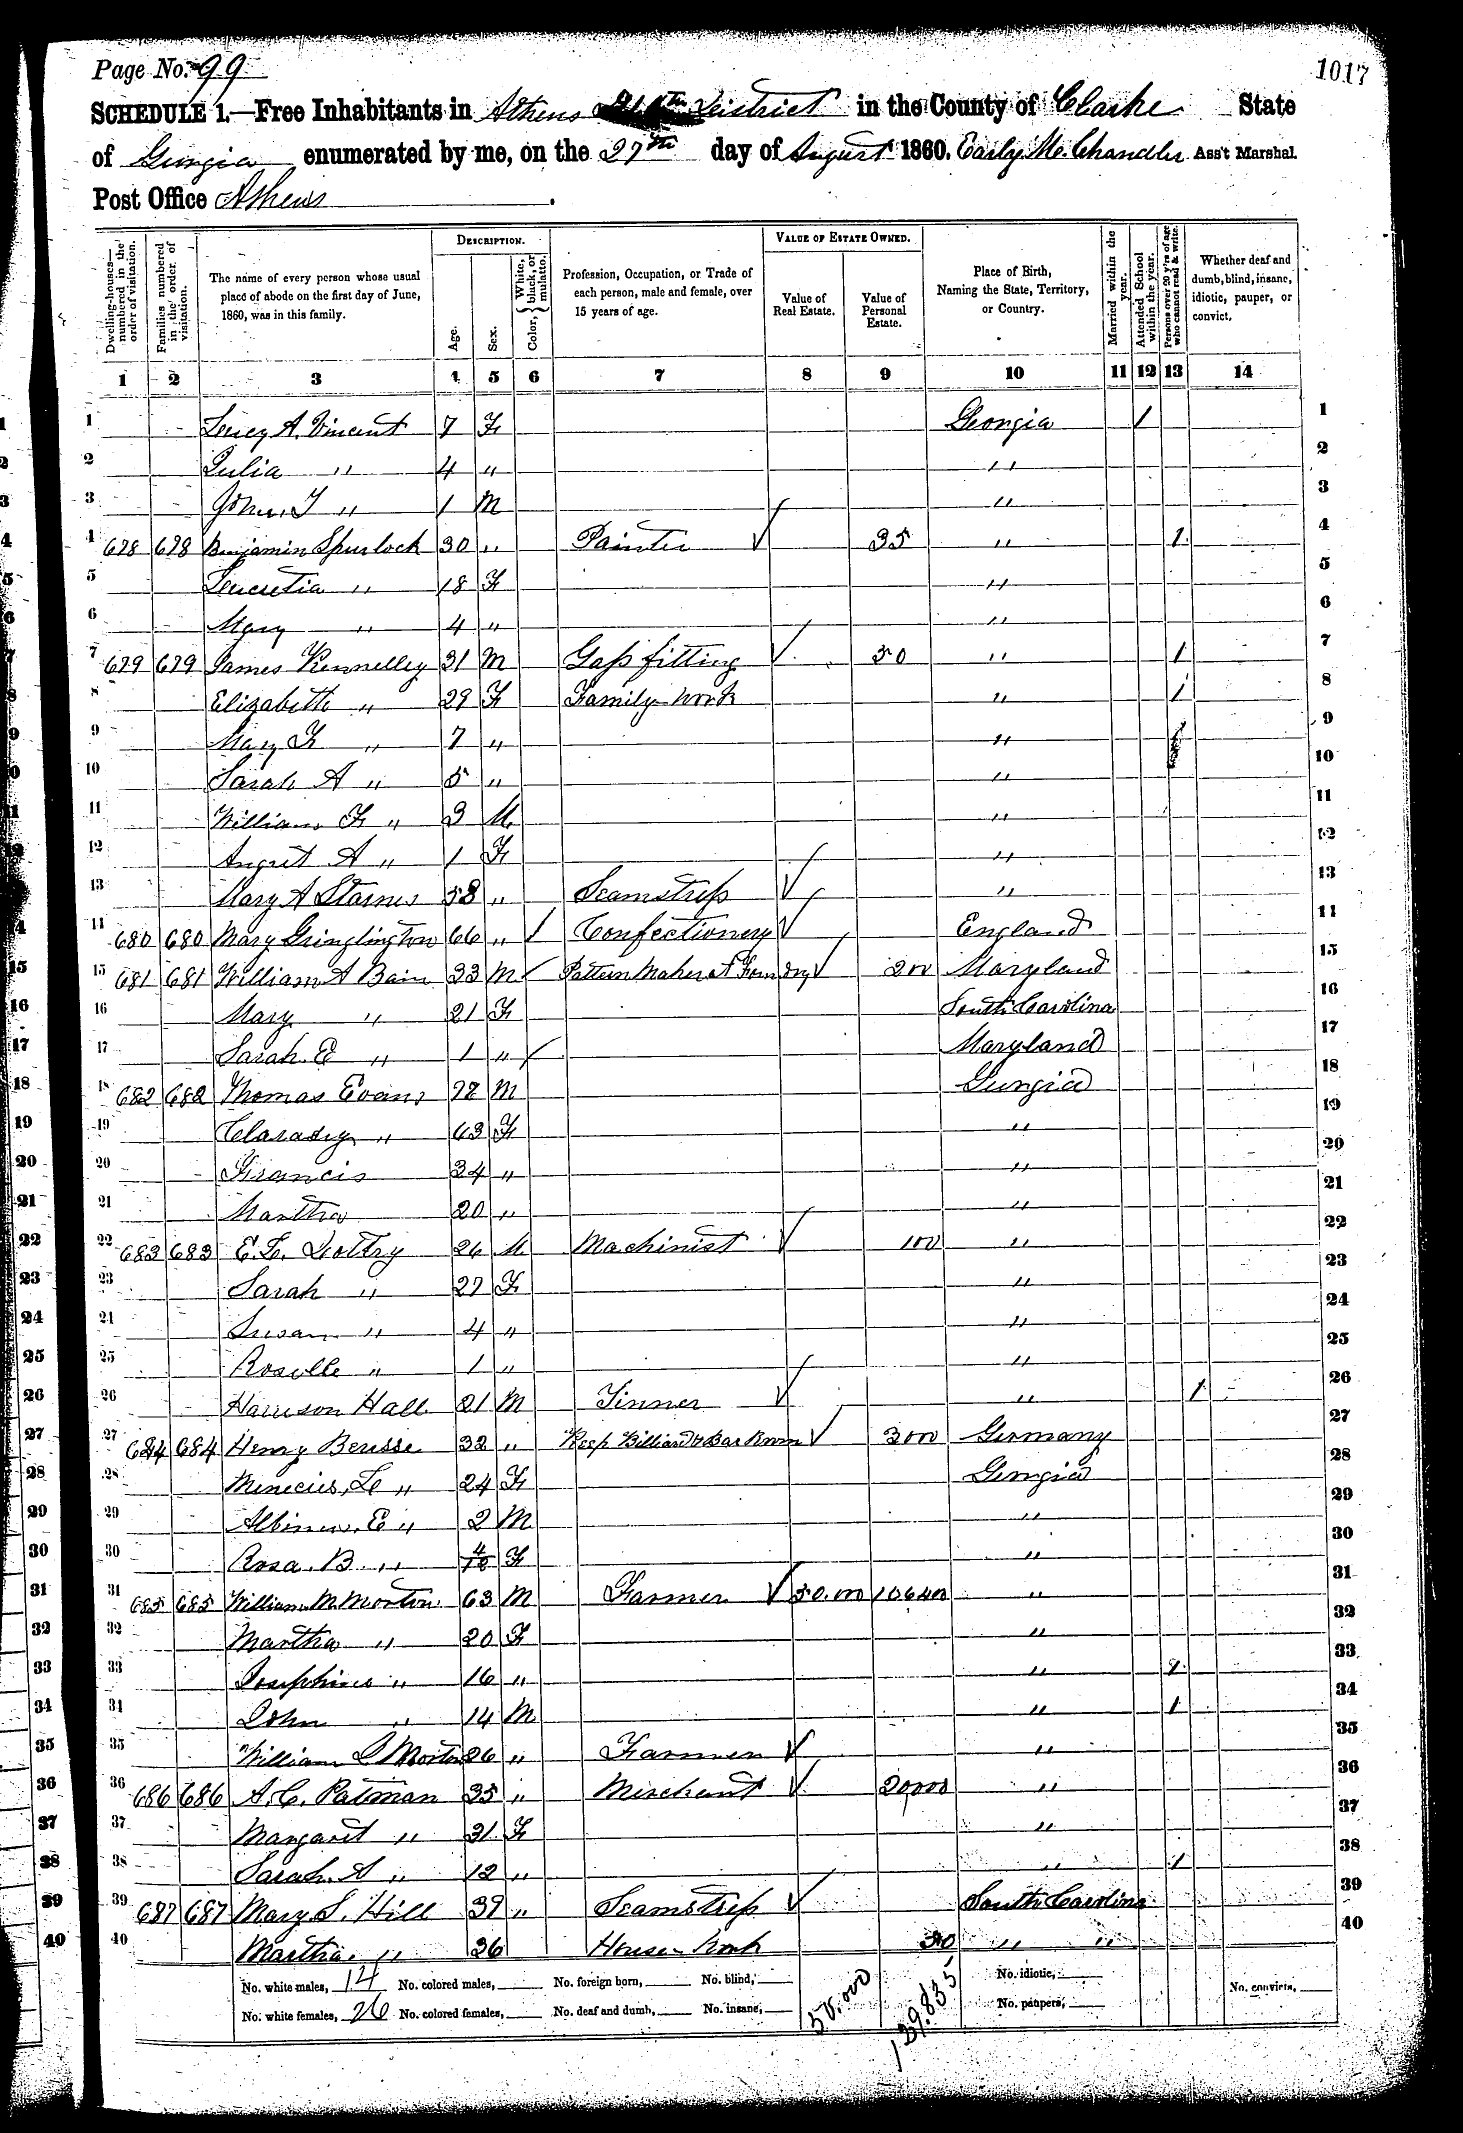 Page No. 99
1017
SCHEDULE 1.—Free Inhabitants in Athens District in the County of Clarke State
of Georgia enumerated by me, on the 27th day of August 1860. Early Mc. Chandler Ass't Marshal.
Post Office Athens
Dwelling-houses—numbered in the order of visitation.
Families numbered in the order of visitation.
The name of every person whose usual place of abode on the first day of June, 1860, was in this family.
DESCRIPTION.
Age.
Sex.
Color, { White, black, or mulatto.
Profession, Occupation, or Trade of each person, male and female, over 15 years of age.
VALUE OF ESTATE OWNED.
Value of Real Estate.
Value of Personal Estate.
Place of Birth, Naming the State, Territory, or Country.
Married within the year.
Attended School within the year.
Persons over 20 y'rs of age who cannot read & write.
Whether deaf and dumb, blind, insane, idiotic, pauper, or convict.
1 2 3 4 5 6 7 8 9 10 11 12 13 14
1 Lucy A. Vincent 7 F Georgia 1 1
2 Julia " 4 " " 2
3 John, T " 1 M " 3
4 678 678 Benjamin Spurlock 30 " Painter 35 " 1 4
5 Lucretia " 18 F " 5
6 Mary " 4 " " 6
7 679 679 James Kennelley 31 M Gass fitting 50 " 1 7
8 Elizabeth " 29 F Family work " 1 8
9 Mary F " 7 " " 9
10 Sarah A " 5 " " 10
11 William F " 3 M " 11
12 A " 1 F " 12
13 Mary A Starnes 58 " Seamstress " 13
14 680 680 Mary Gringlington 66 " Confectionery England
15 681 681 William A Bain 33 M Pattern Maker at Foundry 200 Maryland 15
16 Mary " 21 F South Carolina 16
17 Sarah E " 1 " Maryland 17
18 682 682 Thomas Evans 72 M Georgia 18
19 " 63 F " 19
20 Francis 24 " " 20
21 Martha 20 " " 21
22 683 683 E. L. 26 M Machinist 100 " 22
23 Sarah " 27 F " 23
24 Susan " 4 " " 24
25 " 1 " " 25
26 Harrison Hall 21 M Tinner " 1 26
27 684 684 Henry Beusse 32 " Keep Billiard & Bar Room 3000 Germany 27
28 " 24 F Georgia 28
29 E " 2 M " 29
30 Rosa. B. " F " 30
31 685 685 William M Morton 63 M Farmer 50.000 106400 " 31
32 Martha " 20 F " 32
33 Josephine " 16 " " 1 33
34 John " 14 M " 1 34
35 William J Morton 26 " Farmer " 35
36 686 686 A. C. Patman 35 " Merchant 20,000 " 36
37 Margaret " 31 F " 37
38 Sarah. A " 12 " " 1 38
39 687 687 Mary S. Hill 39 " Seamstress South Carolina 39
40 Martha " 36 House Work " " 40
No. white males, 14 No. colored males, No. foreign born, No. blind, 50.000 139.835 No. idiotic, No. convicts,
No. white females, 26 No. colored females, No. deaf and dumb, No. insane, No. paupers,